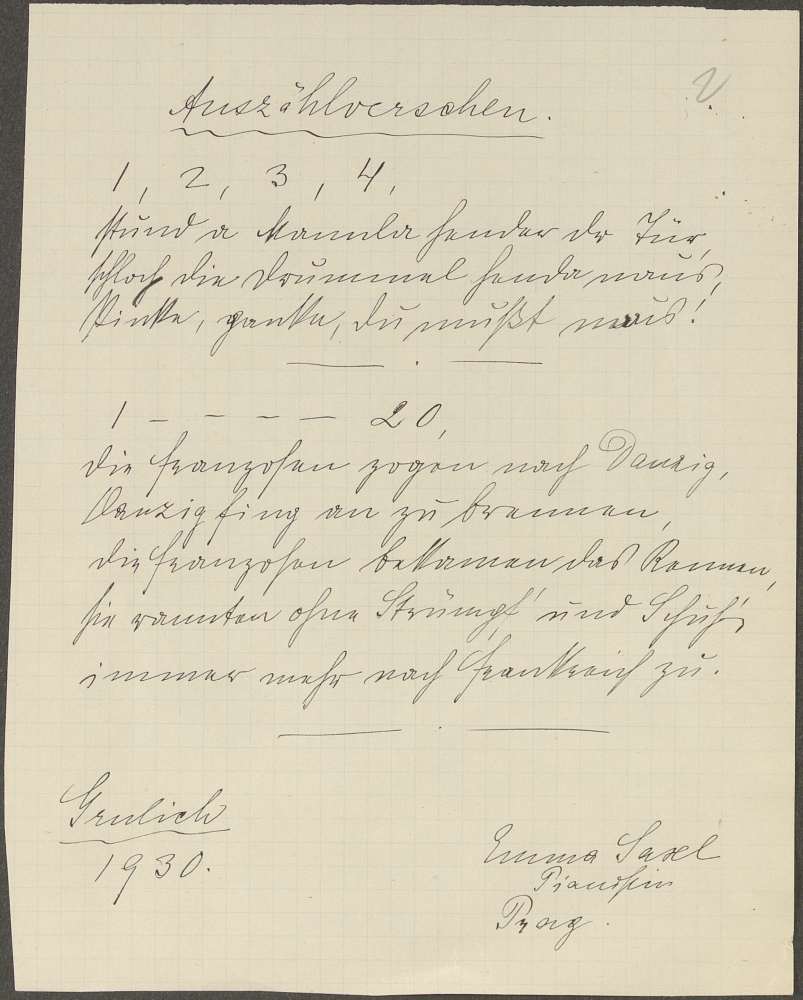 2
Auszählverschen.
1, 2, 3, 4,
stund a Mannla hender dr Tür,
schloch die Drummel henda naus,
Pinka, panka, du mußt naus!
1 - - - - 20,
die Franzosen zogen nach Danzig,
Danzig fing an zu brennen,
die Franzosen bekamen das Rennen,
sie rannten ohne Strümpf' und Schuh',
immer mehr nach Frankreich zu.
Grulich
1930.
Emma Saxel
Pianistin
Prag.